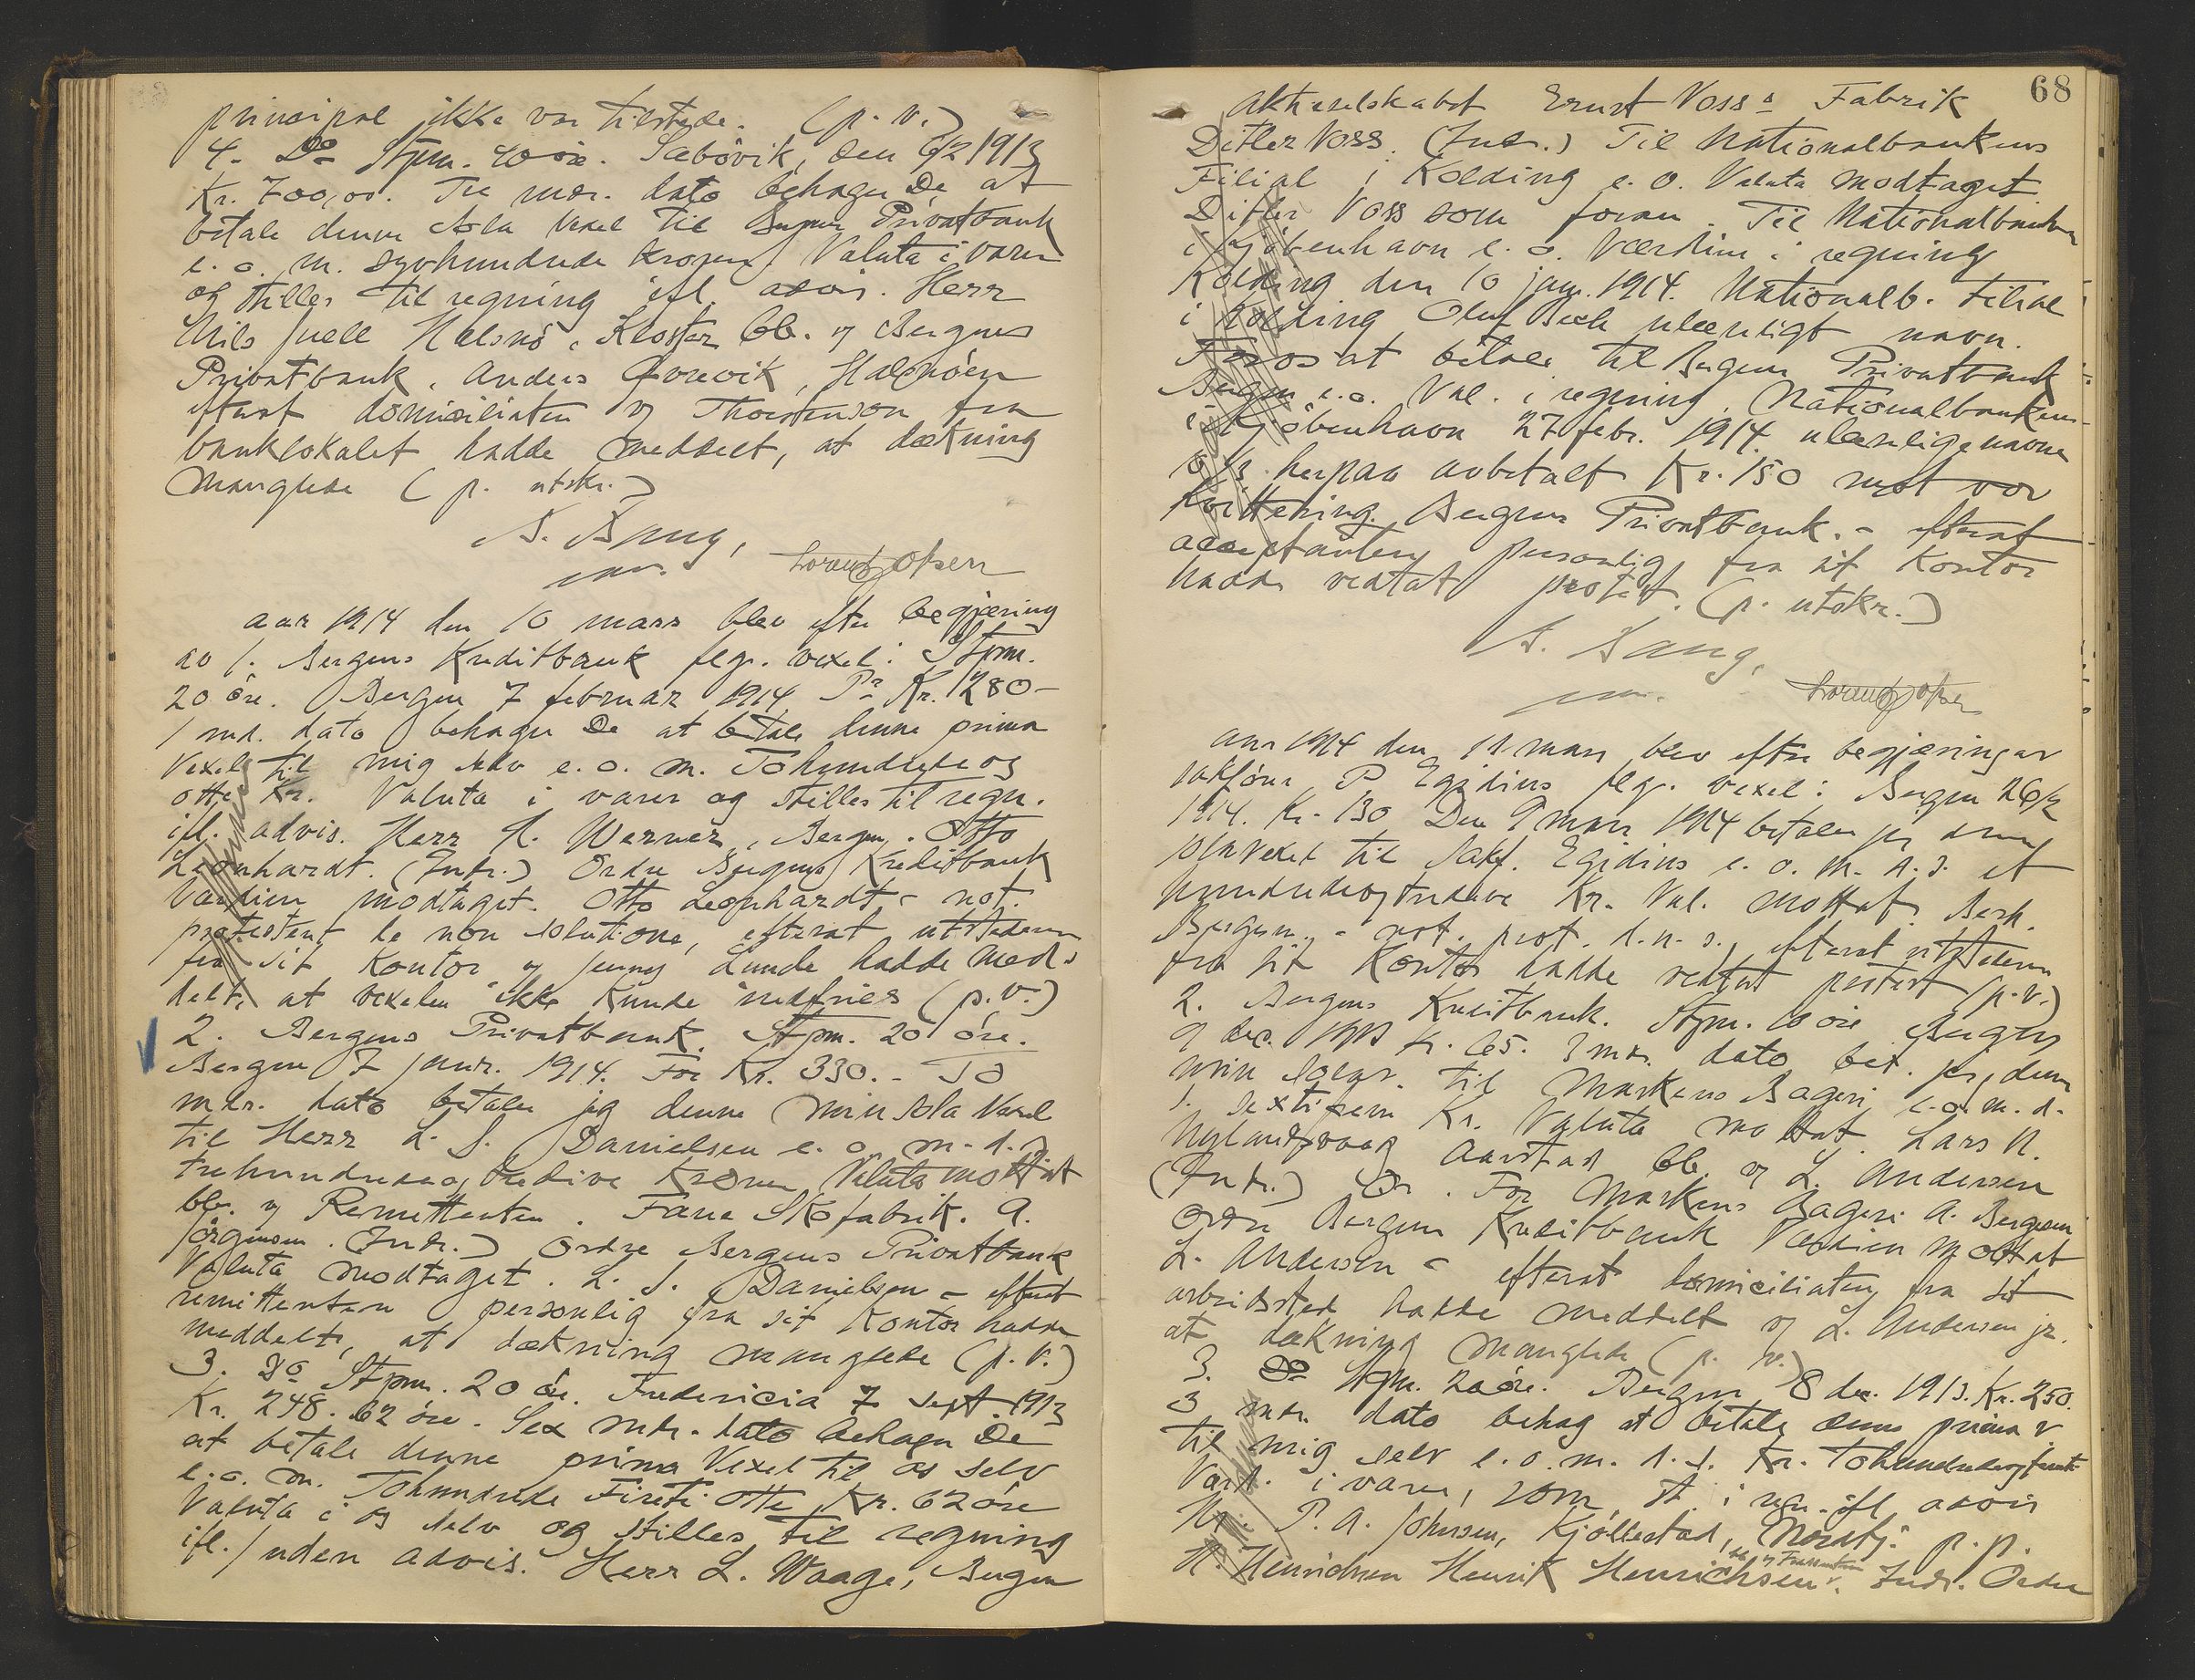 principal ikke var tilstede. (p. v.)
4. Do Stpm. 40 øre. Sæbövik, den 6/2 1913
Kr. 700,00. To mdr. dato behager De at
betale denne Sola Vexel til Bergens Privatbank
e. o. m. syvhundrede Kroner. Valuta i varer
og stilles til regning ifl. advis. Herr
Nils Juell Halsnö, Kloster bb. og Bergens
Privatbank. Anders Tvevik, Halsnöen
efterat domiciliaten og Thorstenson fra
banklokalet hadde meddelt, at dækning
manglede (p. utskr.)
A. Bang,
Lorentz Olsen
aar 1914 den 10 mars blev efter begjæring
av 1. Bergens Kreditbank flg. vexel: Stpm.
20 öre. Bergen 7 februar 1914. Pr Kr. 280-
1 md. dato behager De at betale denne prima
Vexel til mig selv e. o. m. Tohundrede og
otti Kr. Valuta i varer og stilles til regn.
ifl. advis. Herr A. Werner, Bergen. Otto
Leonhardt. (Indr.) Ordre Bergens Kreditbank
Værdien modtaget. Otto Leonhardt - not.
protestert de non solutione, efterat utstederen
fra sit Kontor og Jenny Lunde hadde med-
delt, at vexelen ikke kunde indfries (p.v.)
2. Bergens Privatbank. Stpm. 20 öre.
Bergen 7 janr. 1914. For Kr. 330.- To
mdr. dato betaler jeg denne min sola Vexel
til Herr L. J. Danielsen e. o. m. d.
trehundrede og tredive Kroner Valuta mottat
bb. og Remittenten. Fana Skofabrik. A.
Jörgensen. (Indr.) Ordre Bergens Privatbank
Valuta modtaget. L. J. Danielsen - efterat
remittenten personlig fra sit Kontor hadde
meddelt, at dækning manglede (p. v.)
3. Do Stpm. 20 öre. Fredericia 7 Sept 1913
Kr. 248. 62 öre. Sex mdr. dato behager De
at betale denne prima Vexel til os selv
e. o. m. Tohundrede Firti otte Kr. 62 öre
Valuta i os selv og stilles til regning
ifl. / uden advis. Herr L. Waage, Bergen
68
Aktieselskabet Ernst Voss's Fabrik
Ditlev Voss. (Indr.) Til Nationalbankens
Filial i Kolding e. o. Valuta modtaget.
Ditlev Voss som foran. Til Nationalbanken
i Kjöbenhavn e. o. Værdien i regning
Kolding den 10 jan. 1914. Nationalb. Filial
i Kolding Oluf Bech ulæseligt navn.
For os at betale til Bergens Privatbank
Bergen e. o. Val. i regning. Nationalbanken
i Kjöbenhavn 27 febr. 1914. ulæselige navne
herpaa avbetalt Kr. 150 mot vor
kvittering. Bergens Privatbank. - efterat
acceptanten personlig fra sit Kontor
hadde vedtat protest. (p. utskr.)
A. Bang,
Lorentz Olsen
aar 1914 den 11 mars blev efter begjæring av
sakförer P Egidius flg. vexel: Bergen 26/2
1914. Kr. 130 Den 9 mars 1914 betaler jeg denne
sola vexel til Sakf. Egidius e. o. m. d. s. et
hundredeogtredive Kr. Val. mottat. Berh.
Bergesen - not. prot. d. n. s., efterat utstederen
fra sit Kontor hadde vedtat protest (p. v.)
2. Bergens Kreditbank. Stpm. 10 öre Bergen
9 dec. 1913 Kr. 65. 3 mdr. dato bet. jeg denne
min solav. til Markens Bageri e. o. m. d.
s. Sextifem Kr. Valuta mottat. Lars N.
Nylandsvaag Aarstad bb. og L. Andersen
(Indr.) Or. For Markens Bageri A. Bergesen
Ordre Bergens Kreditbank Værdien mottat
L. Andersen - efterat domiciliaten fra sit
arbeidssted hadde meddelt og L. Andersen jr.
at dækning manglede (p. v.)
3. Do Stpm. 20 öre. Bergen 8 dec. 1913. Kr. 250.
3 mdr. dato behag at betale denne prima v
til mig selv e. o. m. d. s. Kr. Tohundredeogfemti
Værd. i varer, som st. i regn. ifl. advis
Hr. P. A. Johnsen, Kjöllestad, Nordfj. p. p.
H. Henrichsen Henrik Henrichsen. Indr. Ordre